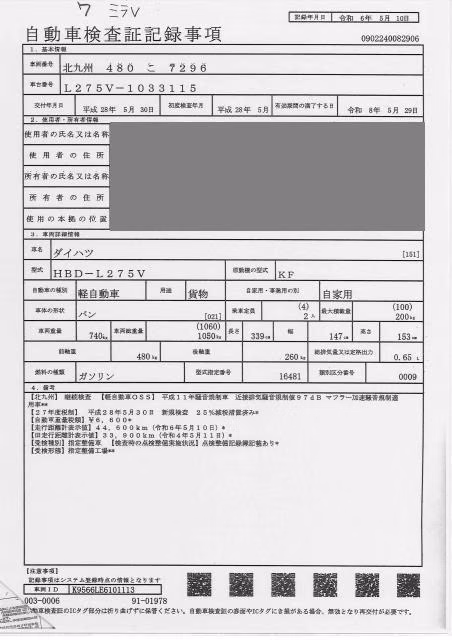 ワ ミラV
記録年月日 令和 6年 5月 10日
自動車検査証記録事項
0902240082906
1. 基本情報
車両番号 北九州 480 こ 7296
車台番号 L275V-1033115
交付年月日 平成 28年 5月 30日 初度検査年月 平成 28年 5月 有効期間の満了する日 令和 8年 5月 29日
2. 使用者・所有者情報
使用者の氏名又は名称
使用者の住所
所有者の氏名又は名称
所有者の住所
使用の本拠の位置
3. 車両詳細情報
車名 ダイハツ [151]
型式 HBD-L275V 原動機の型式 KF
自動車の種別 軽自動車 用途 貨物 自家用・事業用の別 自家用
車体の形状 バン [021] 乗車定員 (4) 2人 最大積載量 (100) 200kg
車両重量 740kg 車両総重量 (1060) 1050kg 長さ 339cm 幅 147cm 高さ 153cm
前軸重 480kg 後軸重 260kg 総排気量又は定格出力 0.65 L
燃料の種類 ガソリン 型式指定番号 16481 類別区分番号 0009
4. 備考
【北九州】 継続検査 【軽自動車OSS】 平成11年騒音規制車 近接排気騒音規制値97dB マフラー加速騒音規制適
用車**
【27年度税制】 平成28年5月30日 新規検査 25%減税措置済み*
【自動車重量税額】 ¥6,600*
【走行距離計表示値】 44,600km (令和6年5月10日)*
【旧走行距離計表示値】 33,900km (令和4年5月11日)*
【受検種別】指定整備車 【検査時の点検整備実施状況】点検整備記録簿記載あり*
【受検形態】指定整備工場**
【注意事項】
記録事項はシステム登録時点の情報となります
車両ID K9566LE6101113
003-0006 91-01978
自動車検査証のICタグ部分は折り曲げずに保管ください。自動車検査証の券面やICタグにき損がある場合、無効となり再交付が必要です。